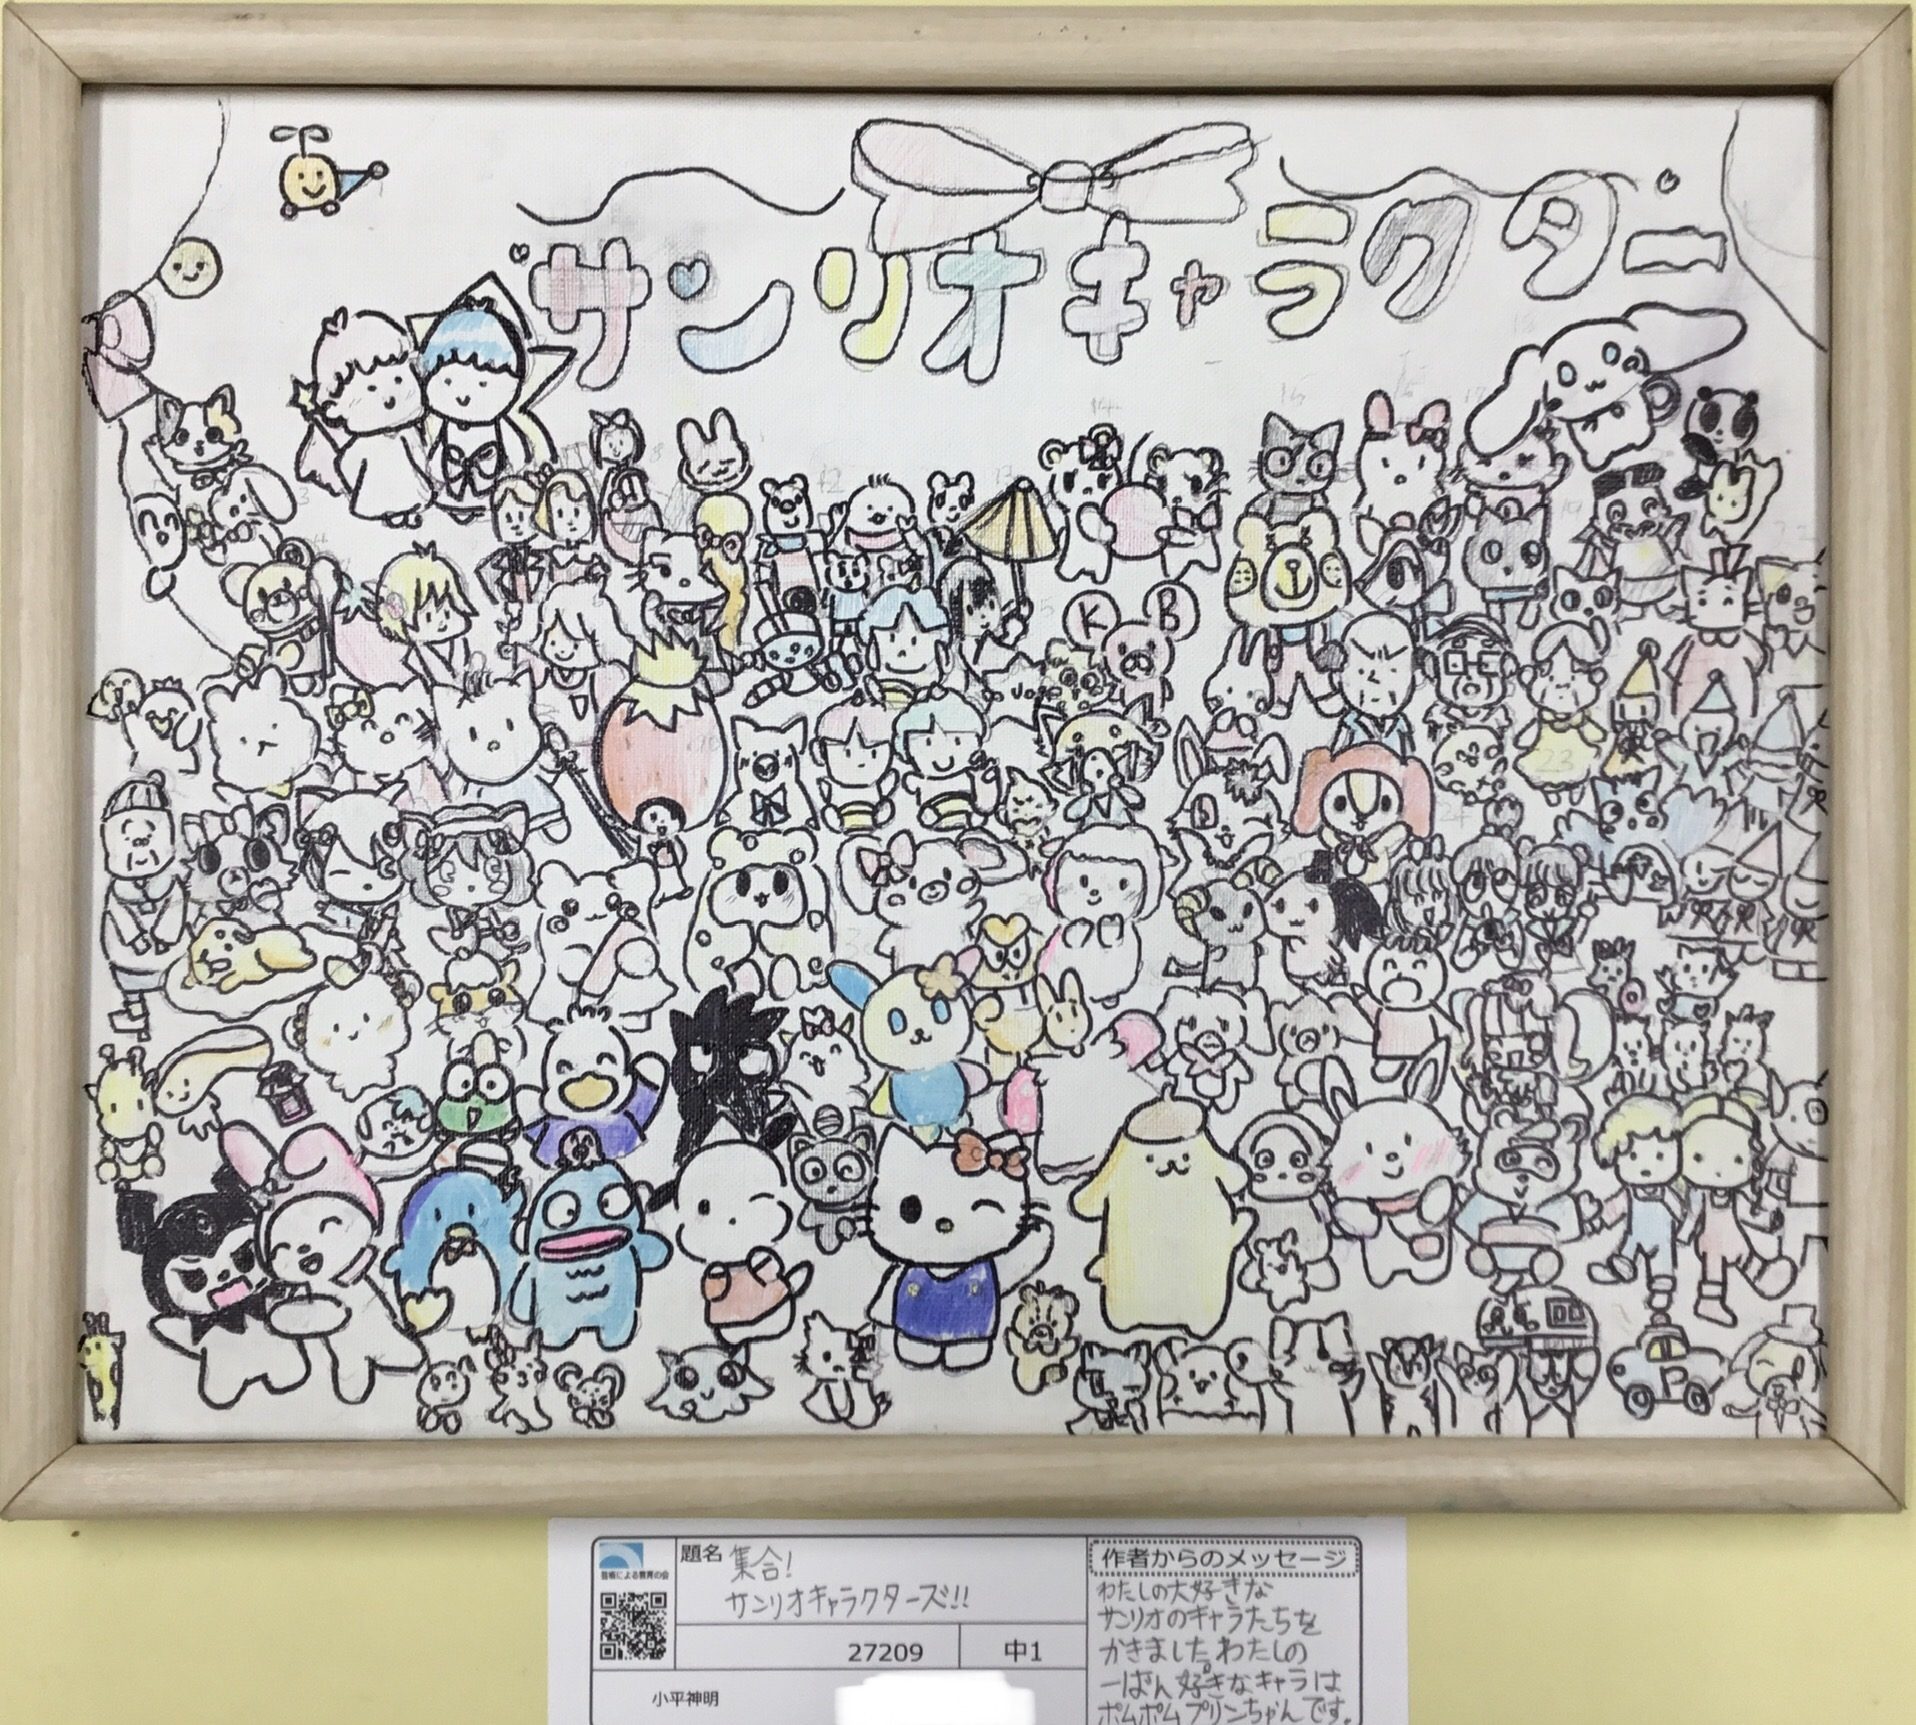 サンリオキャラクター
K B
Jose
芸術による教育の会
題名 集合!
サンリオキャラクターズ!!
27209 中1
小平神明
作者からのメッセージ
わたしの大好きな
サンリオのキャラたちを
かきました。わたしの
一ばん好きなキャラは
ポムポムプリンちゃんです。